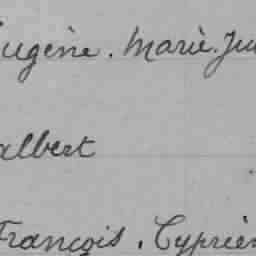 Eugène. Marie. Ju
albert
François. Cyprien